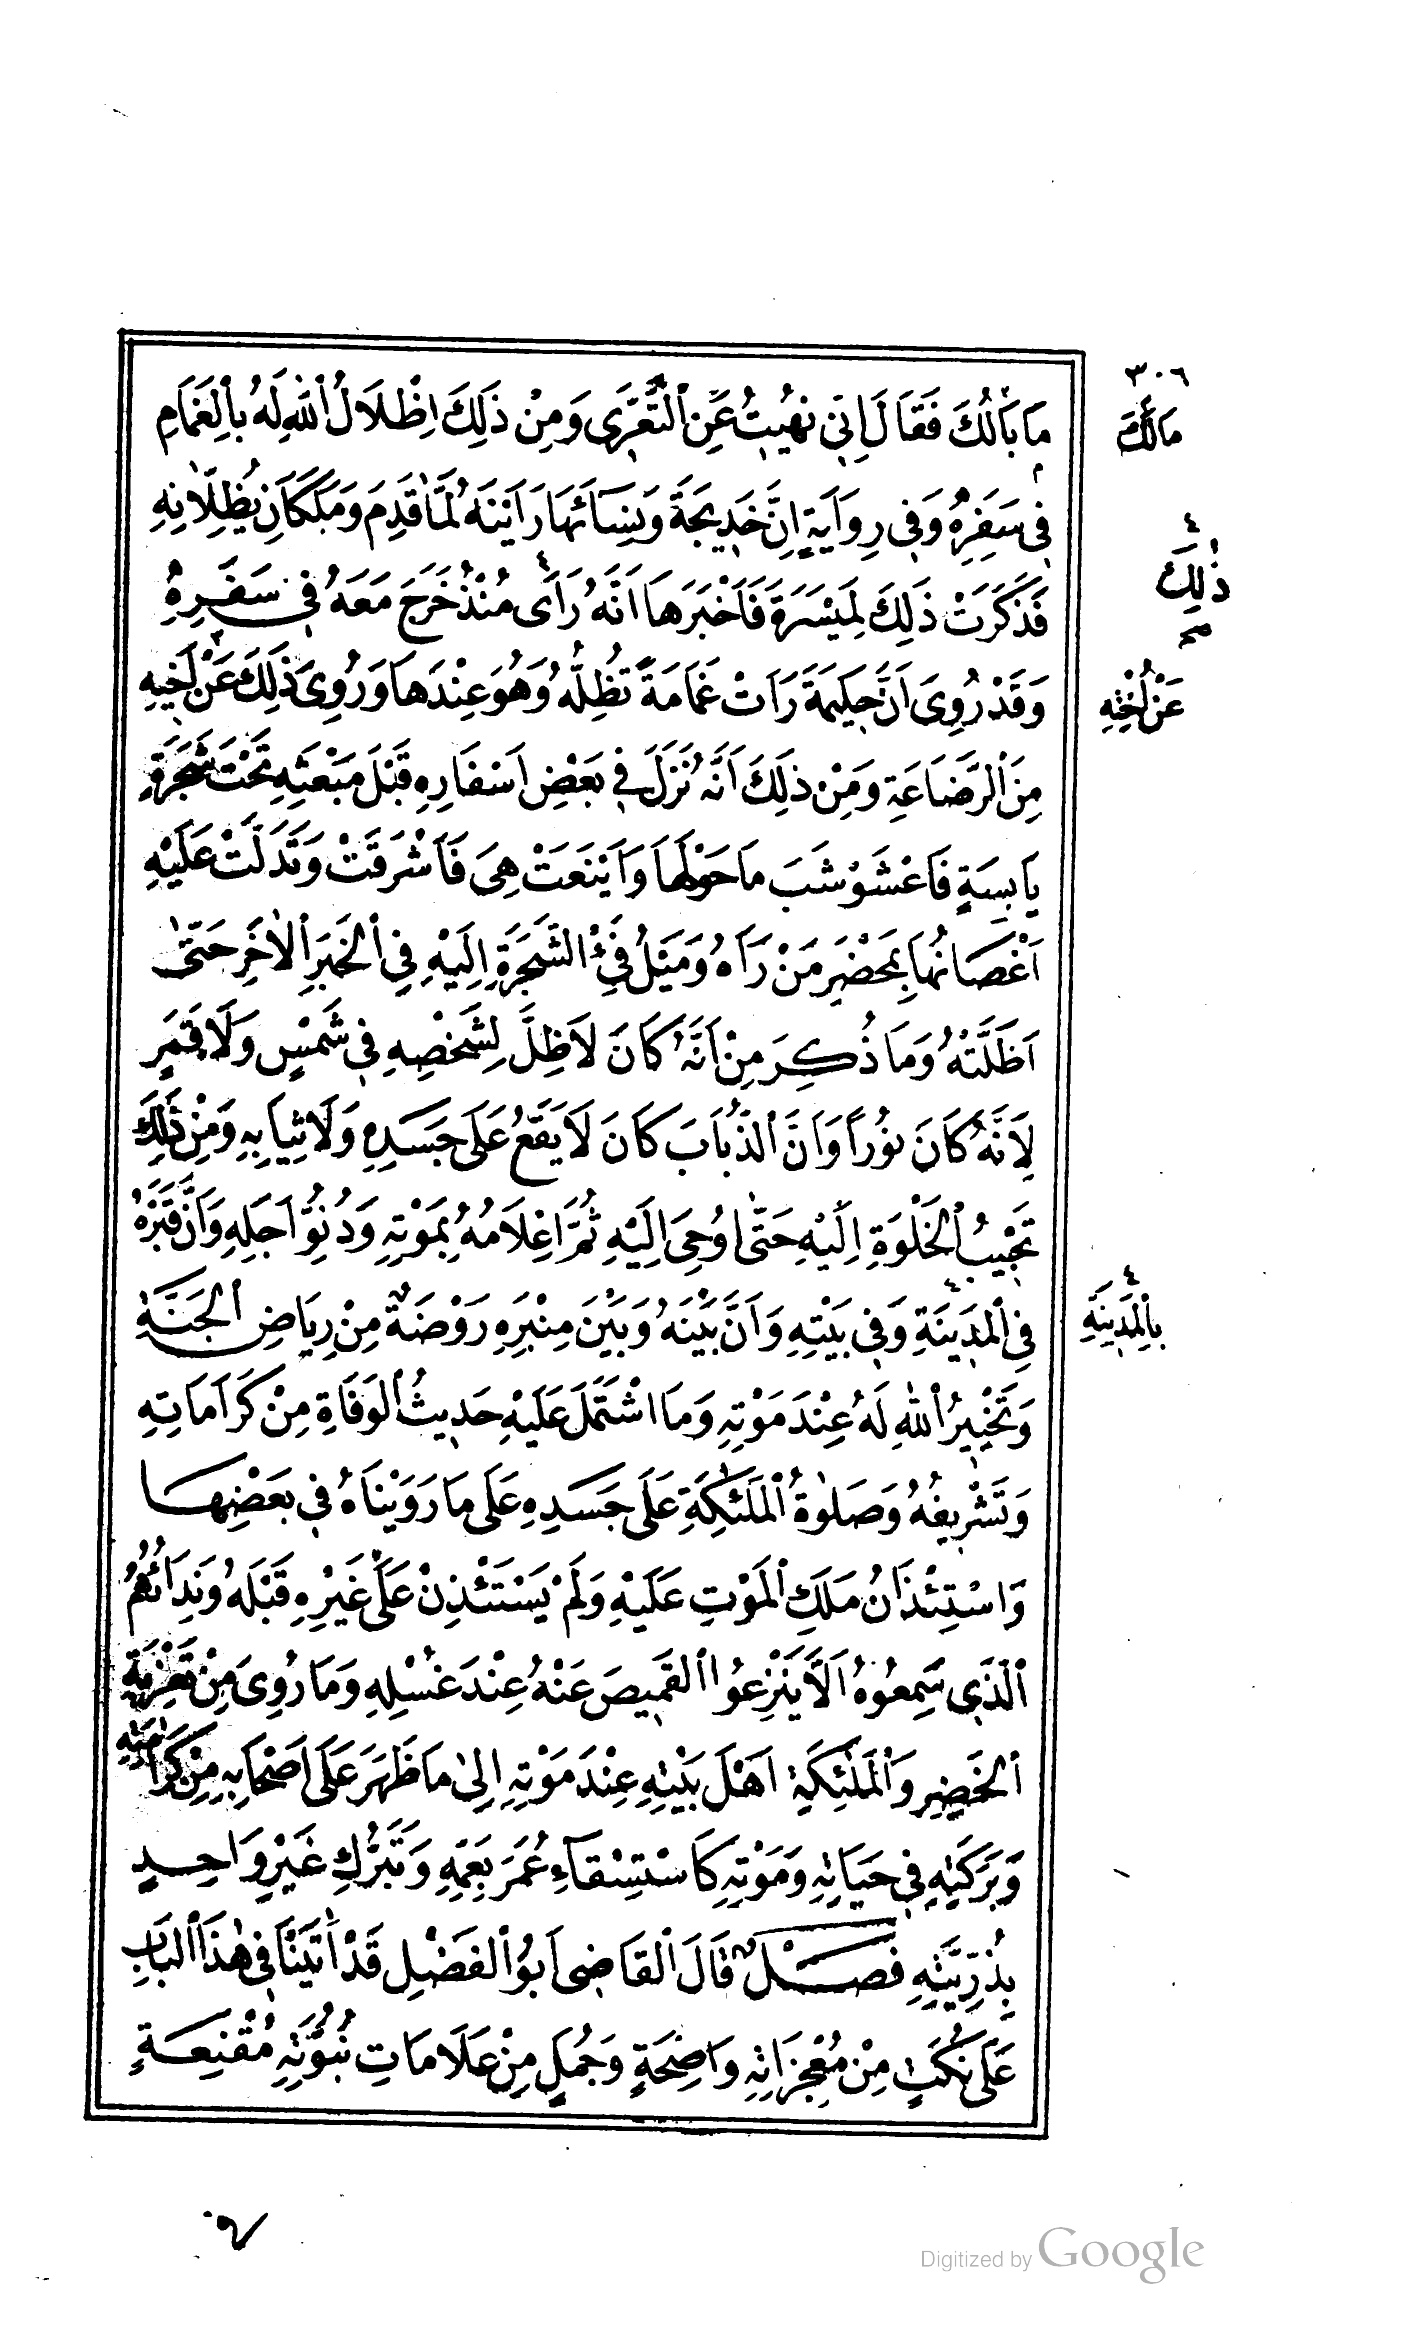 ٣٠٦
مَا بَالُكَ فَقَالَ اِنِّي نُهِيتُ عَنِ ٱلتَّعَرِّي وَمِنْ ذَلِكَ اِظْلَالُ ٱللّٰهِ لَهُ بِٱلْغَمَامِ
مَالَكَ
فِي سَفَرِهِ وَفِي رِوَايَةٍ اِنَّ خَدِيجَةَ وَنِسَاءَهَا رَاَيْنَهُ لَمَّا قَدِمَ وَمَلَكَانِ يُظِلَّانِهِ
فَذَكَرَتْ ذَلِكَ لِمَيْسَرَةَ فَاَخْبَرَهَا اَنَّهُ رَاَى مُنْذُ خَرَجَ مَعَهُ فِي سَفَرِهِ
ذٰلِكَ
صح
وَقَدْ رُوِيَ اَنَّ حَلِيمَةَ رَاَتْ غَمَامَةً تُظِلُّهُ وَهُوَ عِنْدَهَا وَرُوِيَ ذَلِكَ عَنْ اَخِيهِ
عَنْ اُخْتِهِ
مِنَ ٱلرَّضَاعَةِ وَمِنْ ذَلِكَ اَنَّهُ نَزَلَ فِي بَعْضِ اَسْفَارِهِ قَبْلَ مَبْعَثِهِ تَحْتَ شَجَرَةٍ
يَابِسَةٍ فَاعْشَوْشَبَ مَا حَوْلَهَا وَاَيْنَعَتْ هِيَ فَاَشْرَقَتْ وَتَدَلَّتْ عَلَيْهِ
اَغْصَانُهَا بِمَحْضَرِ مَنْ رَاَهُ وَمَيْلُ فَيْءِ الشَّجَرَةِ اِلَيْهِ فِي ٱلْخَبَرِ ٱلْاٰخَرِ حَتّٰى
اَظَلَّتْهُ وَمَا ذُكِرَ مِنْ اَنَّهُ كَانَ لَا ظِلَّ لِشَخْصِهِ فِي شَمْسٍ وَلَا قَمَرٍ
لِاَنَّهُ كَانَ نُورًا وَاَنَّ ٱلذُّبَابَ كَانَ لَا يَقَعُ عَلَى جَسَدِهِ وَلَا ثِيَابِهِ وَمِنْ ذَلِكَ
تَحْبِيبُ ٱلْخَلْوَةِ اِلَيْهِ حَتّٰى اُوحِيَ اِلَيْهِ ثُمَّ اِعْلَامُهُ بِمَوْتِهِ وَدُنُوِّ اَجَلِهِ وَاَنَّ قَبْرَهُ
فِي ٱلْمَدِينَةِ وَفِي بَيْتِهِ وَاَنَّ بَيْنَهُ وَبَيْنَ مِنْبَرِهِ رَوْضَةٌ مِنْ رِيَاضِ ٱلْجَنَّةِ
بِالْمَدِينَةِ
وَتَخْيِيرُ ٱللّٰهِ لَهُ عِنْدَ مَوْتِهِ وَمَا اشْتَمَلَ عَلَيْهِ حَدِيثُ ٱلْوَفَاةِ مِنْ كَرَامَاتِهِ
وَتَشْرِيفُهُ وَصَلٰوةُ ٱلْمَلٰئِكَةِ عَلَى جَسَدِهِ عَلَى مَا رَوَيْنَاهُ فِي بَعْضِهَا
وَاسْتِئْذَانُ مَلَكِ ٱلْمَوْتِ عَلَيْهِ وَلَمْ يَسْتَئْذِنْ عَلَى غَيْرِهِ قَبْلَهُ وَنِدَائُهُمُ
ٱلَّذِي سَمِعُوهُ اَلَّا يَنْزِعُوا ٱلْقَمِيصَ عَنْهُ عِنْدَ غَسْلِهِ وَمَا رُوِيَ مِنْ تَعْزِيَةِ
ٱلْخَضِرِ وَٱلْمَلٰئِكَةِ اَهْلَ بَيْتِهِ عِنْدَ مَوْتِهِ اِلٰى مَا ظَهَرَ عَلَى اَصْحَابِهِ مِنْ كَرَامَتِهِ
وَبَرَكَتِهِ فِي حَيَاتِهِ وَمَوْتِهِ كَاسْتِسْقَاءِ عُمَرَ بِعَمِّهِ وَتَبَرُّكِ غَيْرِ وَاحِدٍ
بِذُرِّيَّتِهِ فَصْلٌ قَالَ ٱلْقَاضِي اَبُو ٱلْفَضْلِ قَدْ اَتَيْنَا فِي هٰذَا ٱلْبَابِ
عَلَى نُكَتٍ مِنْ مُعْجِزَاتِهِ وَاضِحَةٍ وَجُمَلٍ مِنْ عَلَامَاتِ نُبُوَّتِهِ مُقْنِعَةٍ
Digitized by Google